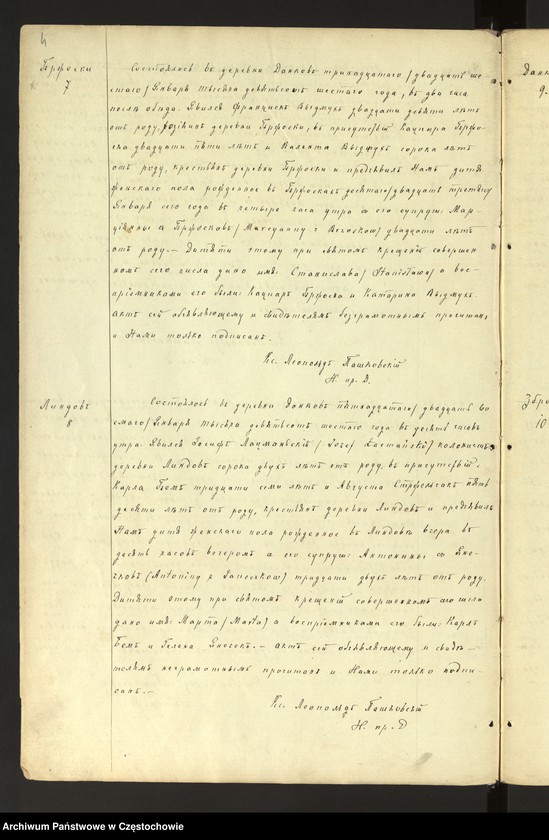 4
7
Состоялось въ деревни Данковѣ тринадцатаго/двадцать ше-
стаго/Января тысяча девятьсотъ шестаго года, въ два часа
послѣ обѣда. Явился Францискъ Выдмухъ двадцати девяти лѣтъ
отъ роду, деревни въ присутствіи Кацпра
двадцати пяти лѣтъ и Валента сорока лѣтъ
отъ роду, крестьянъ деревни и предъявилъ Намъ дитя
женскаго пола рожденное въ десятаго/двадцать третьяго
Января сего года въ четыре часа утра и его супруг:
двадцати лѣтъ
отъ роду.— Дитяти этому при святомъ крещеніи совершен
номъ сего числа дано имя: Станислава/Stanisława/ а вос-
пріемниками его были: Каспаръ и Катарина Выдмухъ.
Актъ сей объявляющему и свидѣтелямъ безграмотнымъ прочитанъ
и Нами только подписанъ.
Кс. Леопольдъ Пашковскій
Н. пр. Д.
Линдовъ
8
Состоялось въ деревни Данковѣ пятнадцатаго/двадцать во
смаго/Января тысяча девятьсотъ шестаго года въ десять часовъ
утра. Явился Іосифъ /Józef колонистъ
деревни Линдовъ сорока двухъ лѣтъ отъ роду, въ присутствіи
Карла Бемъ тридцати семи лѣтъ и Августа пять
десяти лѣтъ отъ роду, крестьянъ деревни Линдовъ и предъявилъ
Намъ дитя женскаго пола рожденное въ Линдовѣ вчера въ
десять часовъ вечеромъ и его супруг: Антонины съ Яно-
чковъ (Antoniny z Janoczków) тридцати двухъ лѣтъ отъ роду.
Дитяти этому при святомъ крещеніи совершенномъ сего числа
дано имя: Марта/Marta/ а воспріемниками его были: Карлъ
Бемъ и Гелена — Актъ сей объявляющему и свидѣ-
телямъ неграмотнымъ прочитанъ и Нами только подпи-
санъ.—
Кс. Леопольдъ Пашковскій
Н. пр. Д
Данк
9.
10
Archiwum Państwowe w Częstochowie